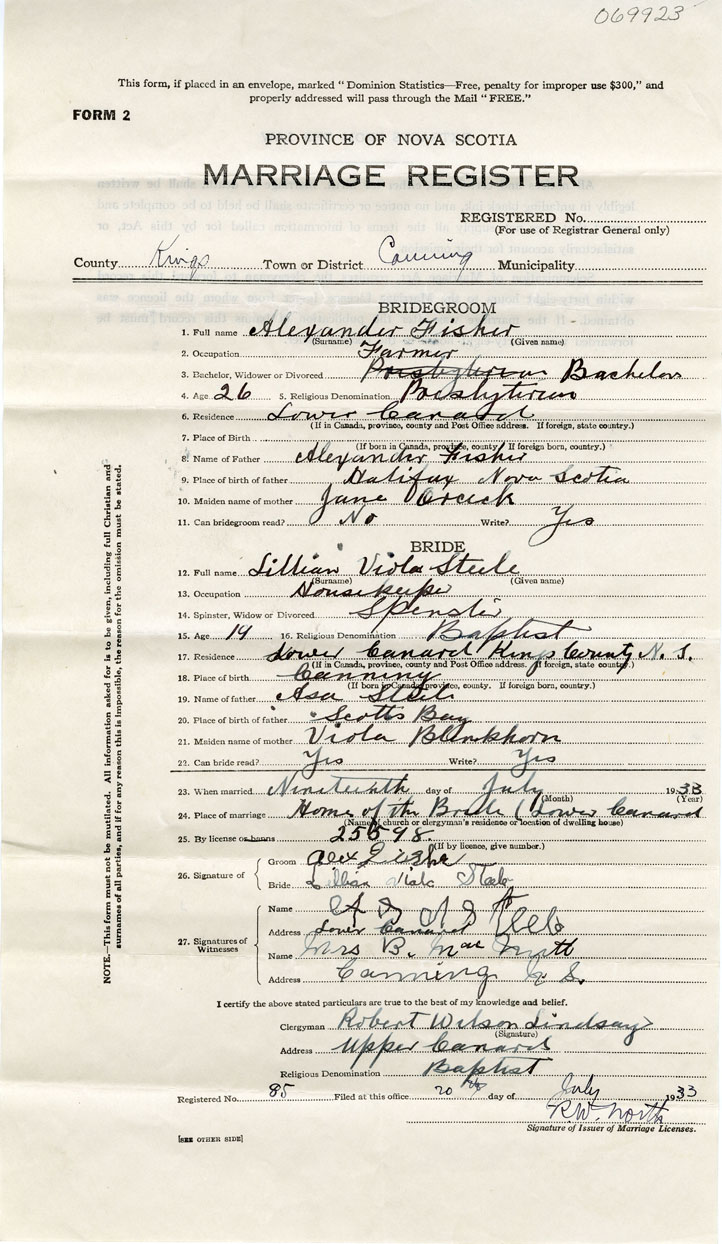 069923
This form, if placed in an envelope, marked "Dominion Statistics—Free, penalty for improper use $300," and
properly addressed will pass through the Mail "FREE."
FORM 2
PROVINCE OF NOVA SCOTIA
MARRIAGE REGISTER
REGISTERED No.
(For use of Registrar General only)
County Kings Town or District Canning Municipality
BRIDEGROOM
1. Full name Alexander Fisher
(Surname) (Given name)
2. Occupation Farmer
3. Bachelor, Widower or Divorced Presbyterian Bachelor
4. Age 26 5. Religious Denomination Presbyterian
6. Residence Lower Canard
(If in Canada, province, county and Post Office address. If foreign, state country.)
7. Place of Birth
(If born in Canada, province, county. If foreign born, country.)
8. Name of Father Alexander Fisher
9. Place of birth of father Halifax Nova Scotia
10. Maiden name of mother Jane
11. Can bridegroom read? No Write? Yes
BRIDE
12. Full name Lillian Viola Steele
(Surname) (Given name)
13. Occupation Housekeeper
14. Spinster, Widow or Divorced Spinster
15. Age 19 16. Religious Denomination Baptist
17. Residence Lower Canard Kings County N. S.
(If in Canada, province, county and Post Office address. If foreign, state country.)
18. Place of birth Canning
(If born in Canada, province, county. If foreign born, country.)
19. Name of father Asa Steele
20. Place of birth of father Scotts Bay
21. Maiden name of mother Viola Blinkhorn
22. Can bride read? Yes Write? Yes
23. When married Nineteenth day of July 1933
(Month) (Year)
24. Place of marriage Home of the Bride (Lower Canard
(Name of church or clergyman's residence or location of dwelling house)
25. By license or banns 25598
(If by licence, give number.)
26. Signature of
Groom Alex
Bride Lillian Viola Steele
27. Signatures of Witnesses
Name
Address Lower Canard
Name Mrs B. Mac
Address Canning N. S.
I certify the above stated particulars are true to the best of my knowledge and belief.
Clergyman Robert Wilson Lindsay
(Signature)
Address Upper Canard
Religious Denomination Baptist
Registered No. 85 Filed at this office 20th day of July 1933
R.W. North
Signature of Issuer of Marriage Licenses.
[SEE OTHER SIDE]
NOTE.—This form must not be mutilated. All information asked for is to be given, including full Christian and
surnames of all parties, and if for any reason this is impossible, the reason for the omission must be stated.